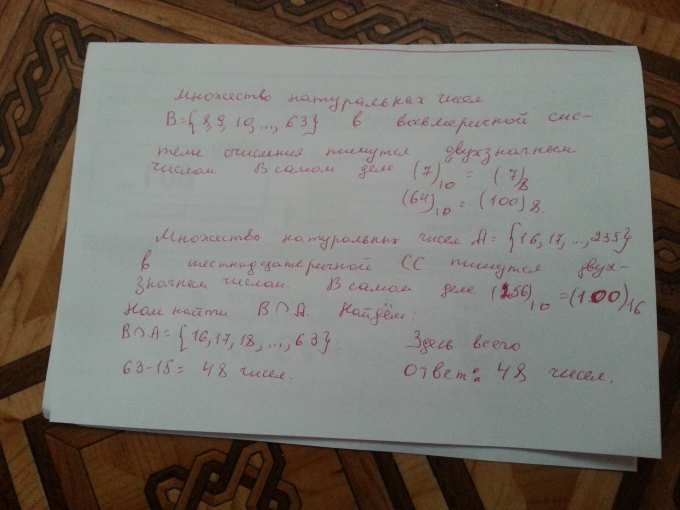 Множество натуральных чисел
B={8,9,10,..., 63} в восьмеричной сис-
теме счисления пишутся двухзначным
числом В самом деле (7)₁₀ = (7)₈
(64)₁₀ = (100)8.
Множество натуральных чисел A = {16,17,...,235}
в шестнадцатеричной СС пишутся двух-
значным числом. В самом деле (256)₁₀ = (100)₁₆
Нам найти B∩A. Найдём:
B∩A = {16,17,18,...,63} Здесь всего
63-15= 48 чисел. Ответ: 48 чисел.